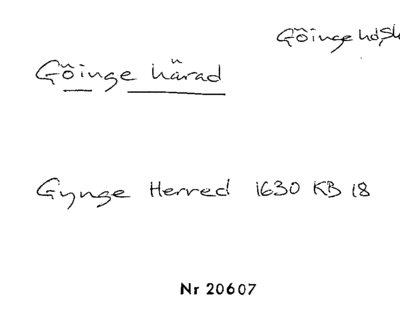 Göinge
Göinge härad
Gynge Herred 1630 KB 18
Nr 20607